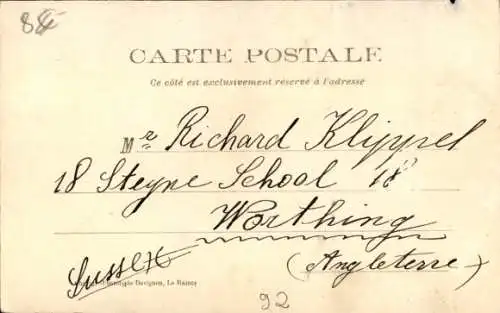 CARTE POSTALE
Ce côté est exclusivement réservé à l'adresse
Mr Richard Klippel
18 Steyne School 18
Worthing
Sussex
(Angleterre)
Davignon, Le Raincy
92